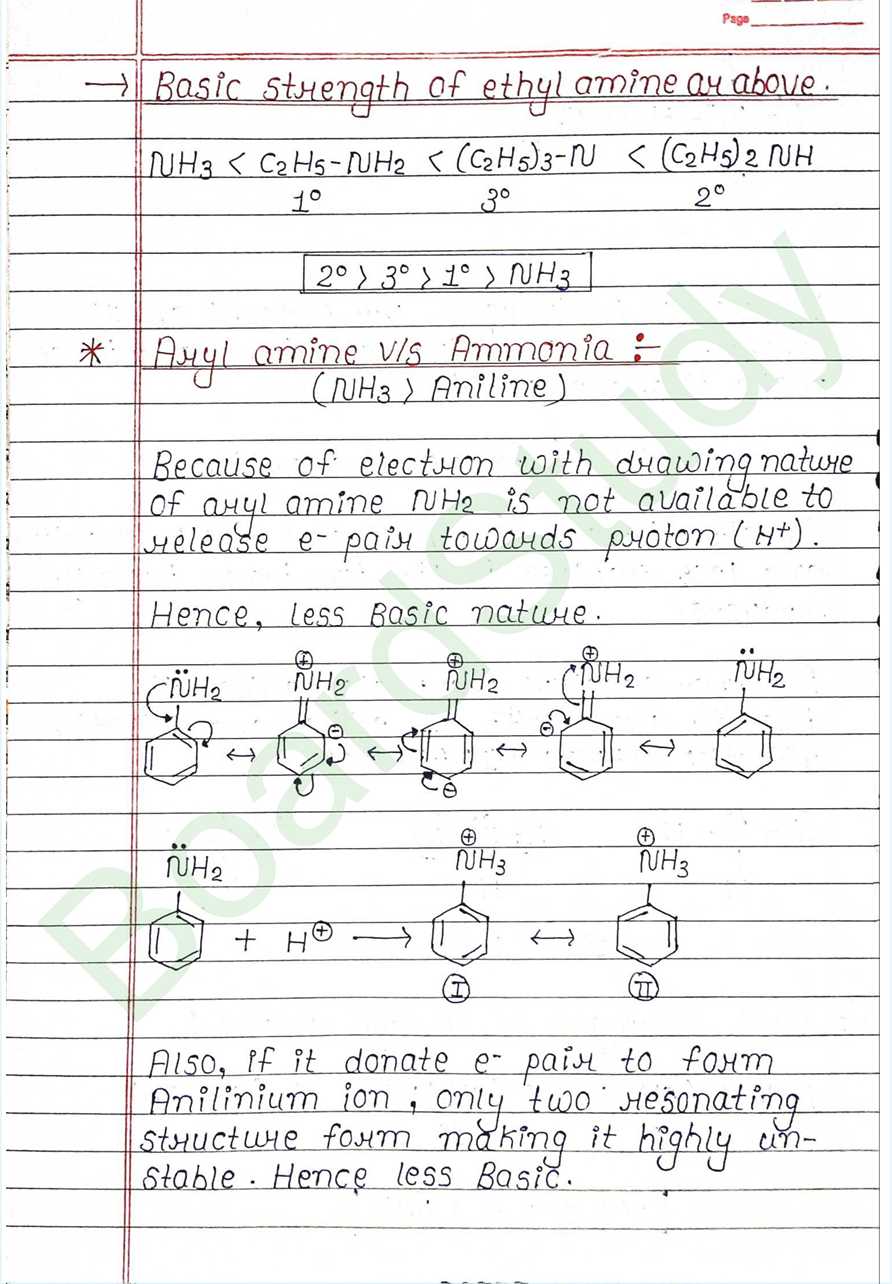 Page
→ Basic strength of ethyl amine or above.
NH3 < C2H5-NH2 < (C2H5)3-N < (C2H5)2 NH
1° 3° 2°
2° > 3° > 1° > NH3
* Aryl amine v/s Ammonia :-
(NH3 > Aniline)
Because of electron with drawing nature
of aryl amine NH2 is not available to
release e- pair towards proton (H+).
Hence, less Basic nature.
⊕ ⊕ ⊕
N̈H2 NH2 NH2 NH2 N̈H2
⊖ ⊖
↔ ↔ ↔ ↔
⊖
⊕ ⊕
N̈H2 NH3 NH3
+ H⊕ → ↔
I II
Also, if it donate e- pair to form
Anilinium ion, only two resonating
structure form making it highly un-
stable. Hence less Basic.
BoardStudy